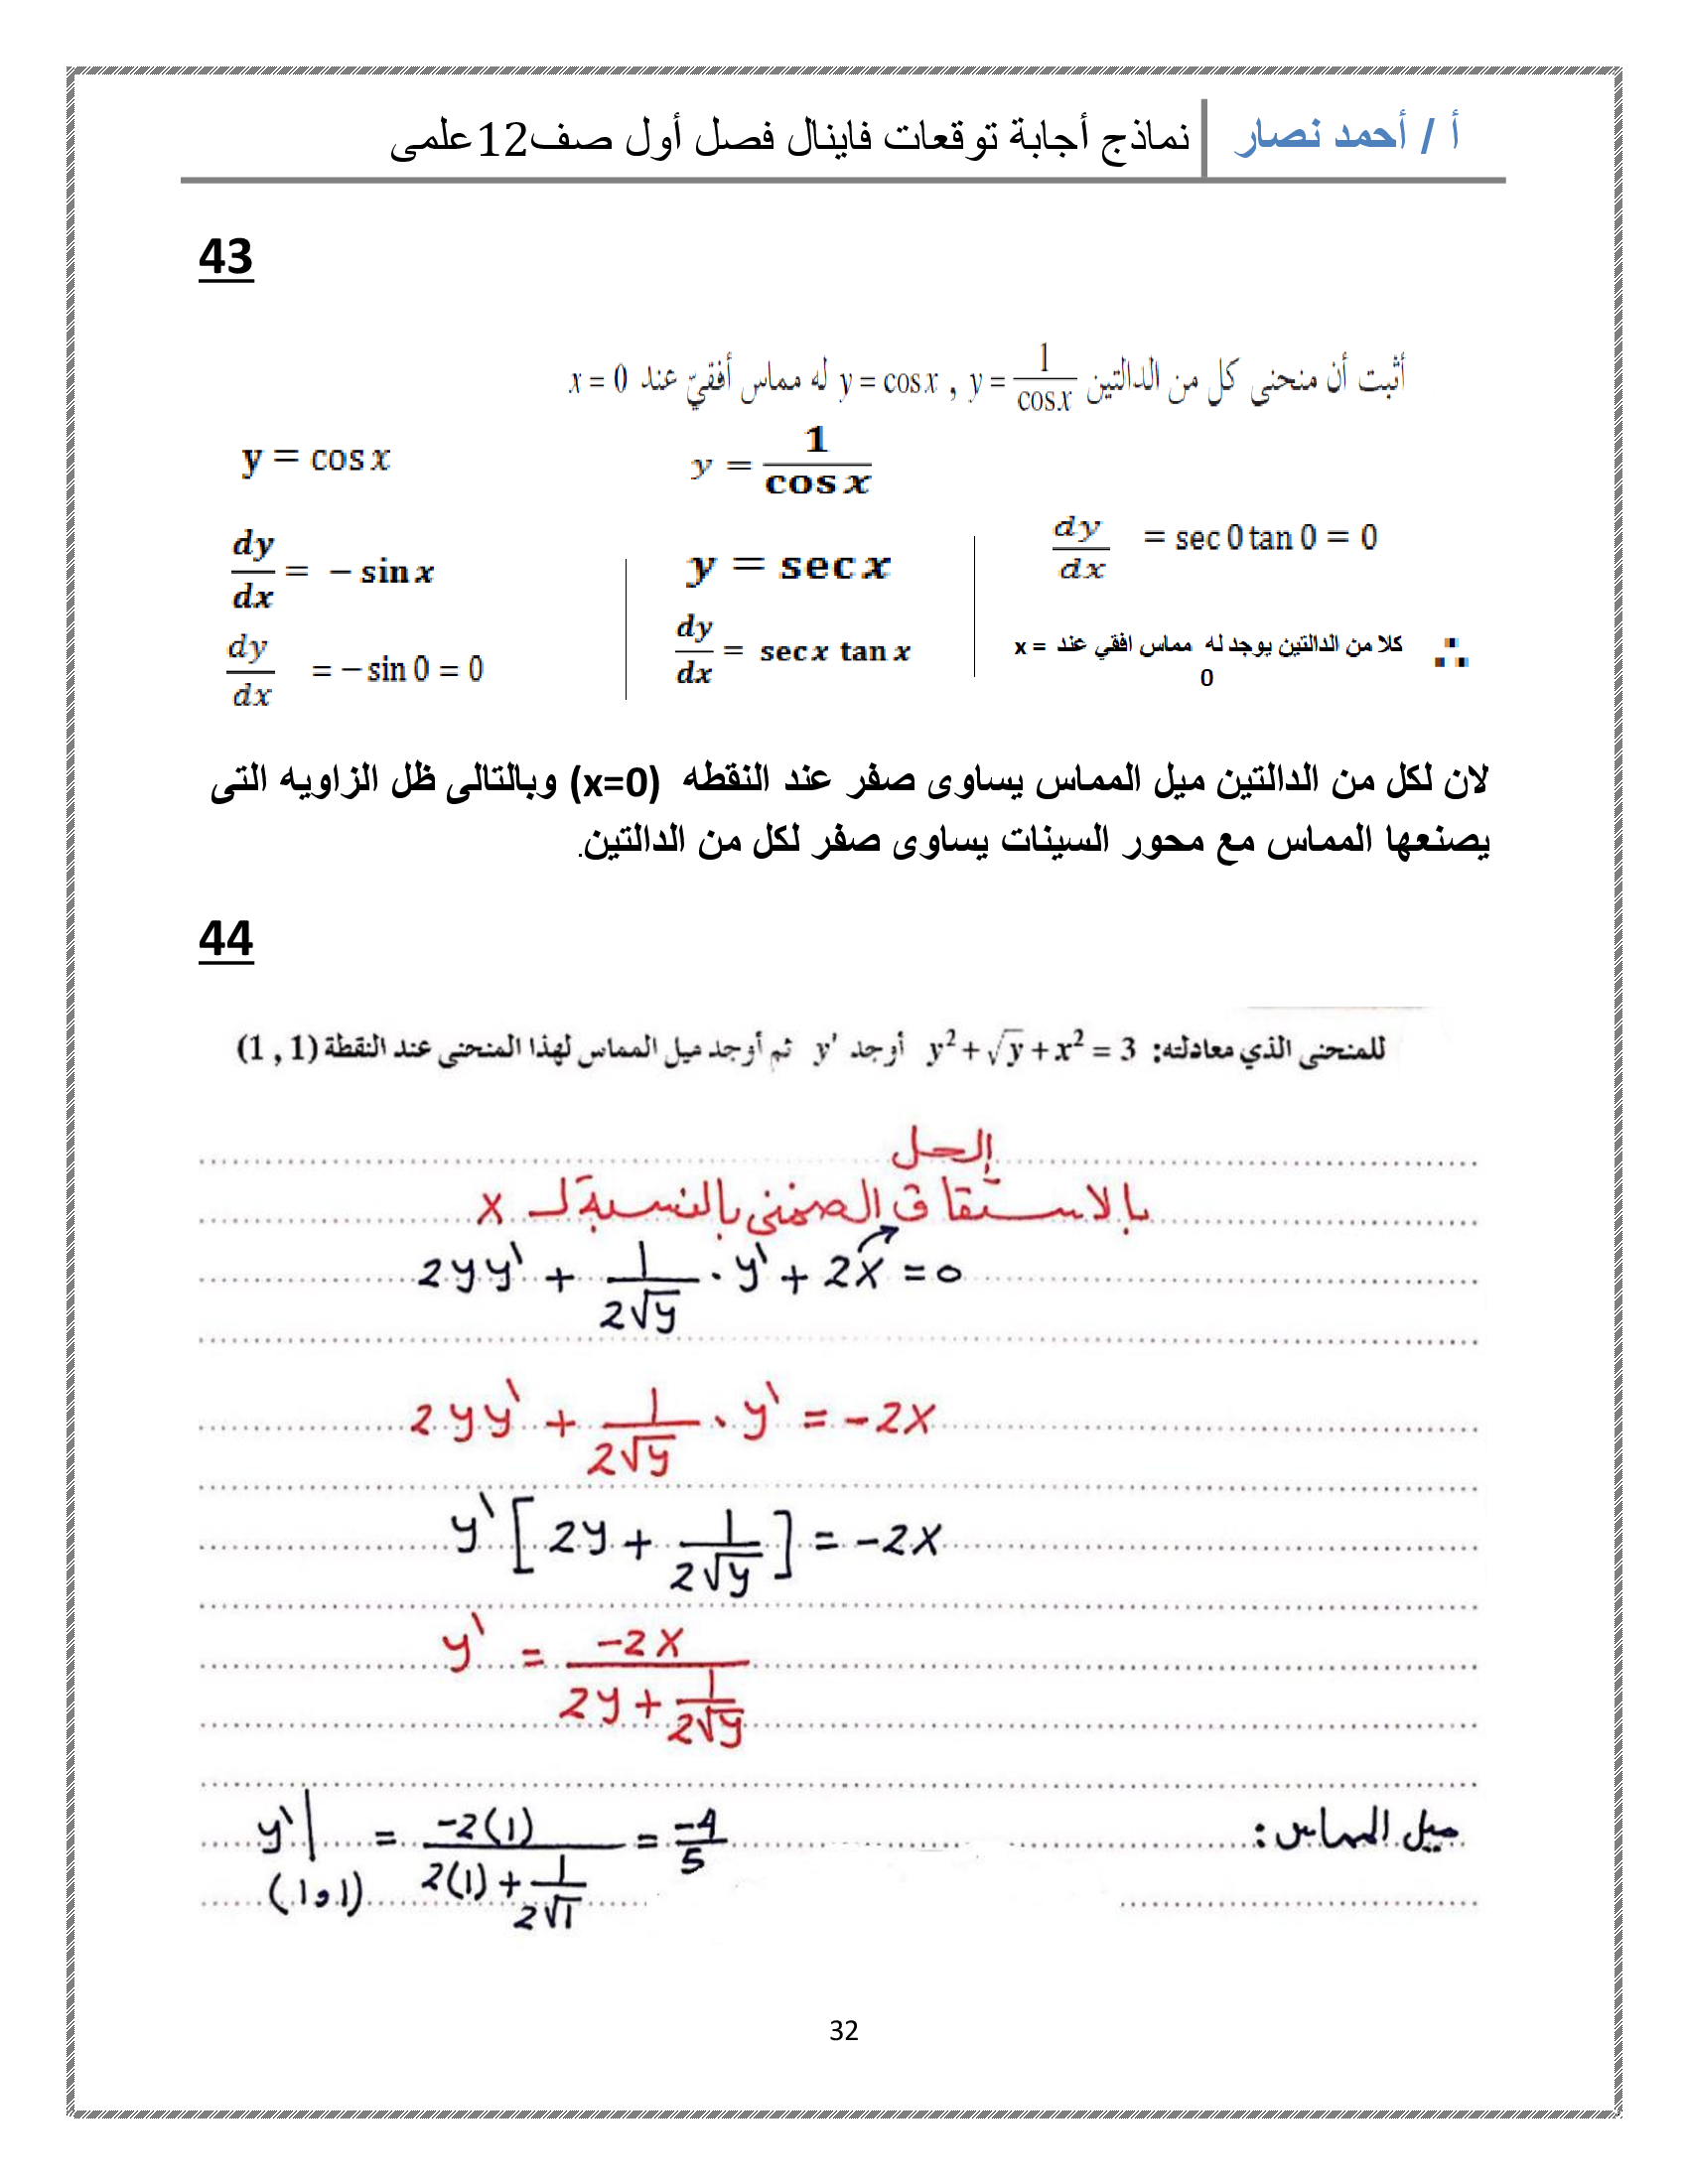 أ / أحمد نصار
نماذج أجابة توقعات فاينال فصل أول صف12علمى
43
أثبت أن منحنى كل من الدالتين y = cos x , y = 1/cos x له مماس أفقيّ عند x = 0
y = cos x
dy/dx = − sin x
dy/dx = − sin 0 = 0
y = 1/cos x
y = sec x
dy/dx = sec x tan x
dy/dx = sec 0 tan 0 = 0
∴ كلا من الدالتين يوجد له مماس افقي عند x =
0
لان لكل من الدالتين ميل المماس يساوى صفر عند النقطه (x=0) وبالتالى ظل الزاويه التى
يصنعها المماس مع محور السينات يساوى صفر لكل من الدالتين.
44
للمنحنى الذي معادلته: y² + √y + x² = 3 أوجد y' ثم أوجد ميل المماس لهذا المنحنى عند النقطة (1 , 1)
الحل
بالاستقاق الضمنى بالنسبة لـ x
2yy' + 1/(2√y) · y' + 2x = 0
2yy' + 1/(2√y) · y' = −2x
y' [2y + 1/(2√y)] = −2x
y' = −2x/(2y + 1/(2√y))
ميل المماس :
y'|(1,1) = −2(1)/(2(1) + 1/(2√1)) = −4/5
32